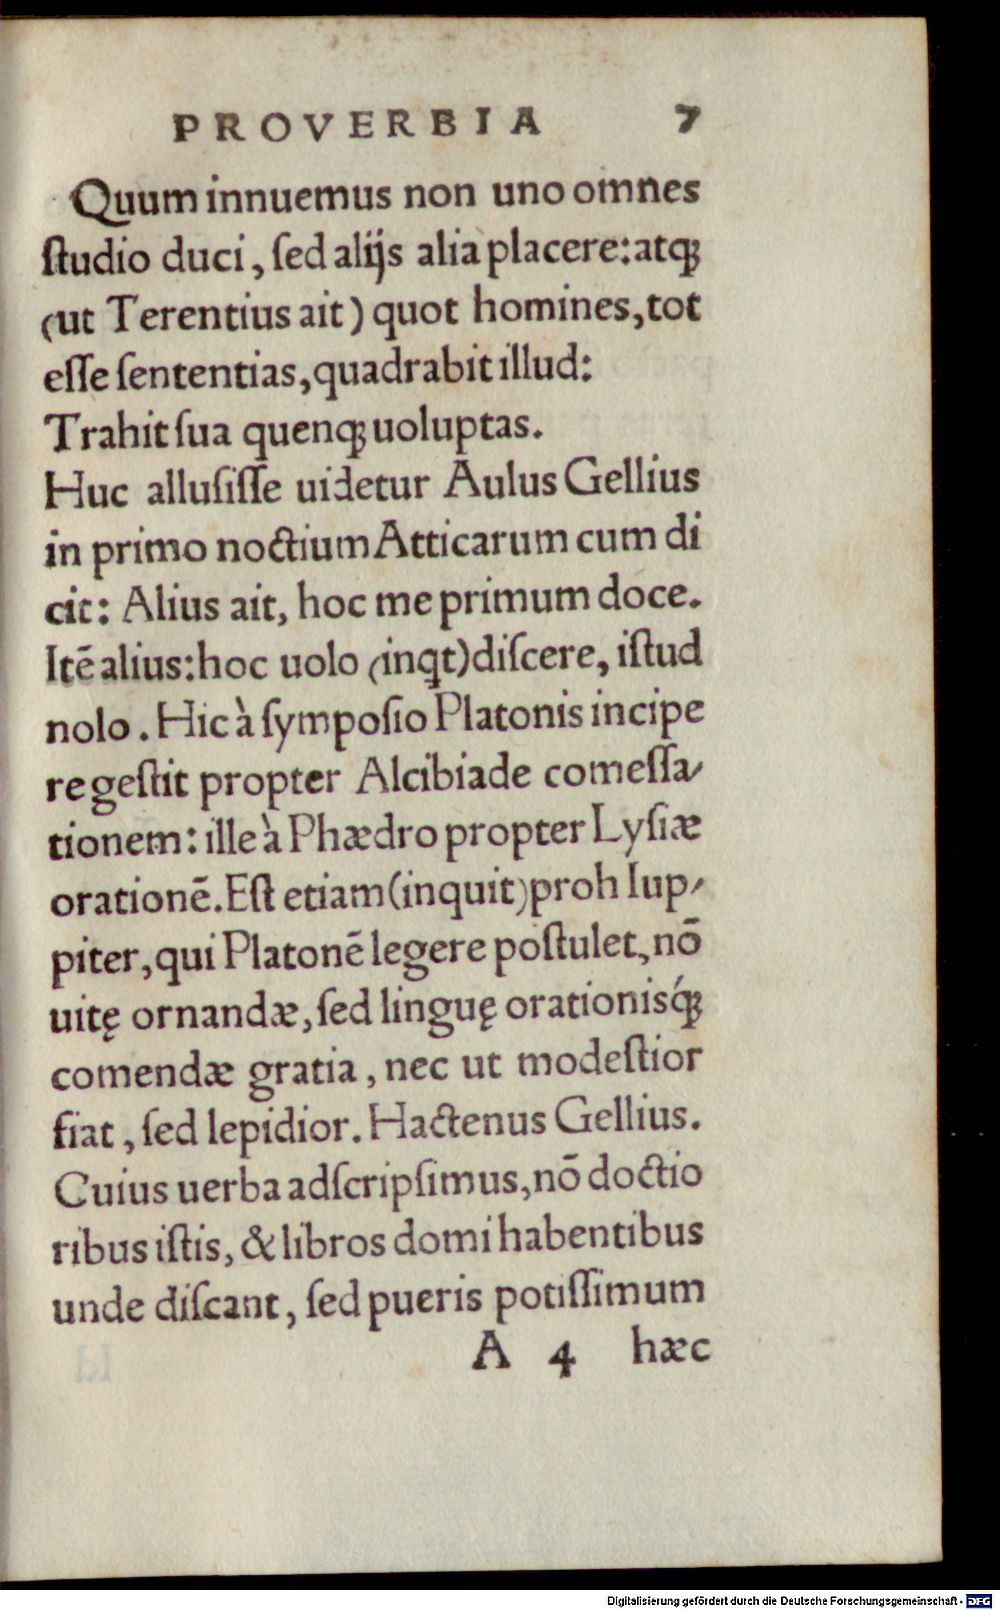 PROVERBIA 7
Quum innuemus non uno omnes
ſtudio duci, ſed alijs alia placere: atq;
(ut Terentius ait) quot homines, tot
eſſe ſententias, quadrabit illud:
Trahit ſua quenq; uoluptas.
Huc alluſiſſe uidetur Aulus Gellius
in primo noctium Atticarum cum di
cit: Alius ait, hoc me primum doce.
Itē alius: hoc uolo (inqt) diſcere, iſtud
nolo. Hic à ſympoſio Platonis incipe
re geſtit propter Alcibiade comeſſa/
tionem: ille à Phædro propter Lyſiæ
orationē. Eſt etiam (inquit) proh Iup/
piter, qui Platonē legere poſtulet, nō
uitę ornandæ, ſed linguę orationisq́;
comendæ gratia, nec ut modeſtior
fiat, ſed lepidior. Hactenus Gellius.
Cuius uerba adſcripſimus, nō doctio
ribus iſtis, & libros domi habentibus
unde diſcant, ſed pueris potiſſimum
A 4 hæc
Digitalisierung gefördert durch die Deutsche Forschungsgemeinschaft - DFG